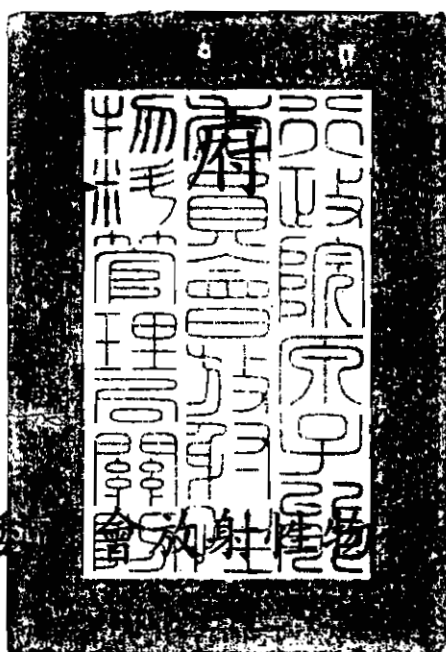 行政院原子能
委員會放射性
物料管理局關防
府
會放射性物